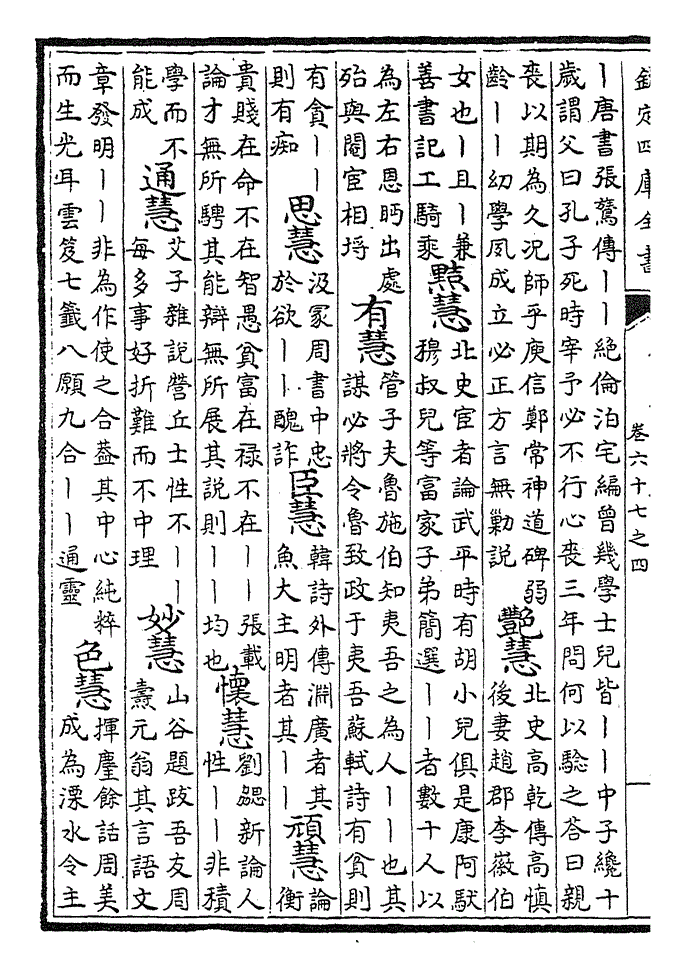 欽定四庫全書
卷六十七之四
丨唐書張鷟傳丨丨絶倫泊宅編曾幾學士兒皆丨丨中子纔十
歲謂父曰孔子死時宰予必不行心喪三年問何以驗之荅曰親
喪以期為久況師乎庾信鄭常神道碑弱
齡丨丨幼學夙成立必正方言無勦説
艷慧
北史高乾傳高慎
後妻趙郡李薇伯
女也丨且丨兼
善書記工騎乘
黠慧
北史宦者論武平時有胡小兒俱是康阿馱
穆叔兒等富家子弟簡選丨丨者數十人以
為左右恩眄出處
殆與閹宦相埒
有慧
管子夫魯施伯知夷吾之為人丨丨也其
謀必將令魯致政于夷吾蘇軾詩有貧則
有貪丨丨
則有痴
思慧
汲冢周書中忠
於欲丨丨醜詐
臣慧
韓詩外傳淵廣者其
魚大主明者其丨丨
頑慧
論
衡
貴賤在命不在智愚貧富在禄不在丨丨張載
論才無所騁其能辯無所展其説則丨丨均也
懷慧
劉勰新論人
性丨丨非積
學而不
能成
通慧
艾子雜説營丘士性不丨丨
每多事好折難而不中理
妙慧
山谷題跋吾友周
壽元翁其言語文
章發明丨丨非為作使之合葢其中心純粹
而生光耳雲笈七籤八願九合丨丨通靈
色慧
揮麈餘話周美
成為溧水令主